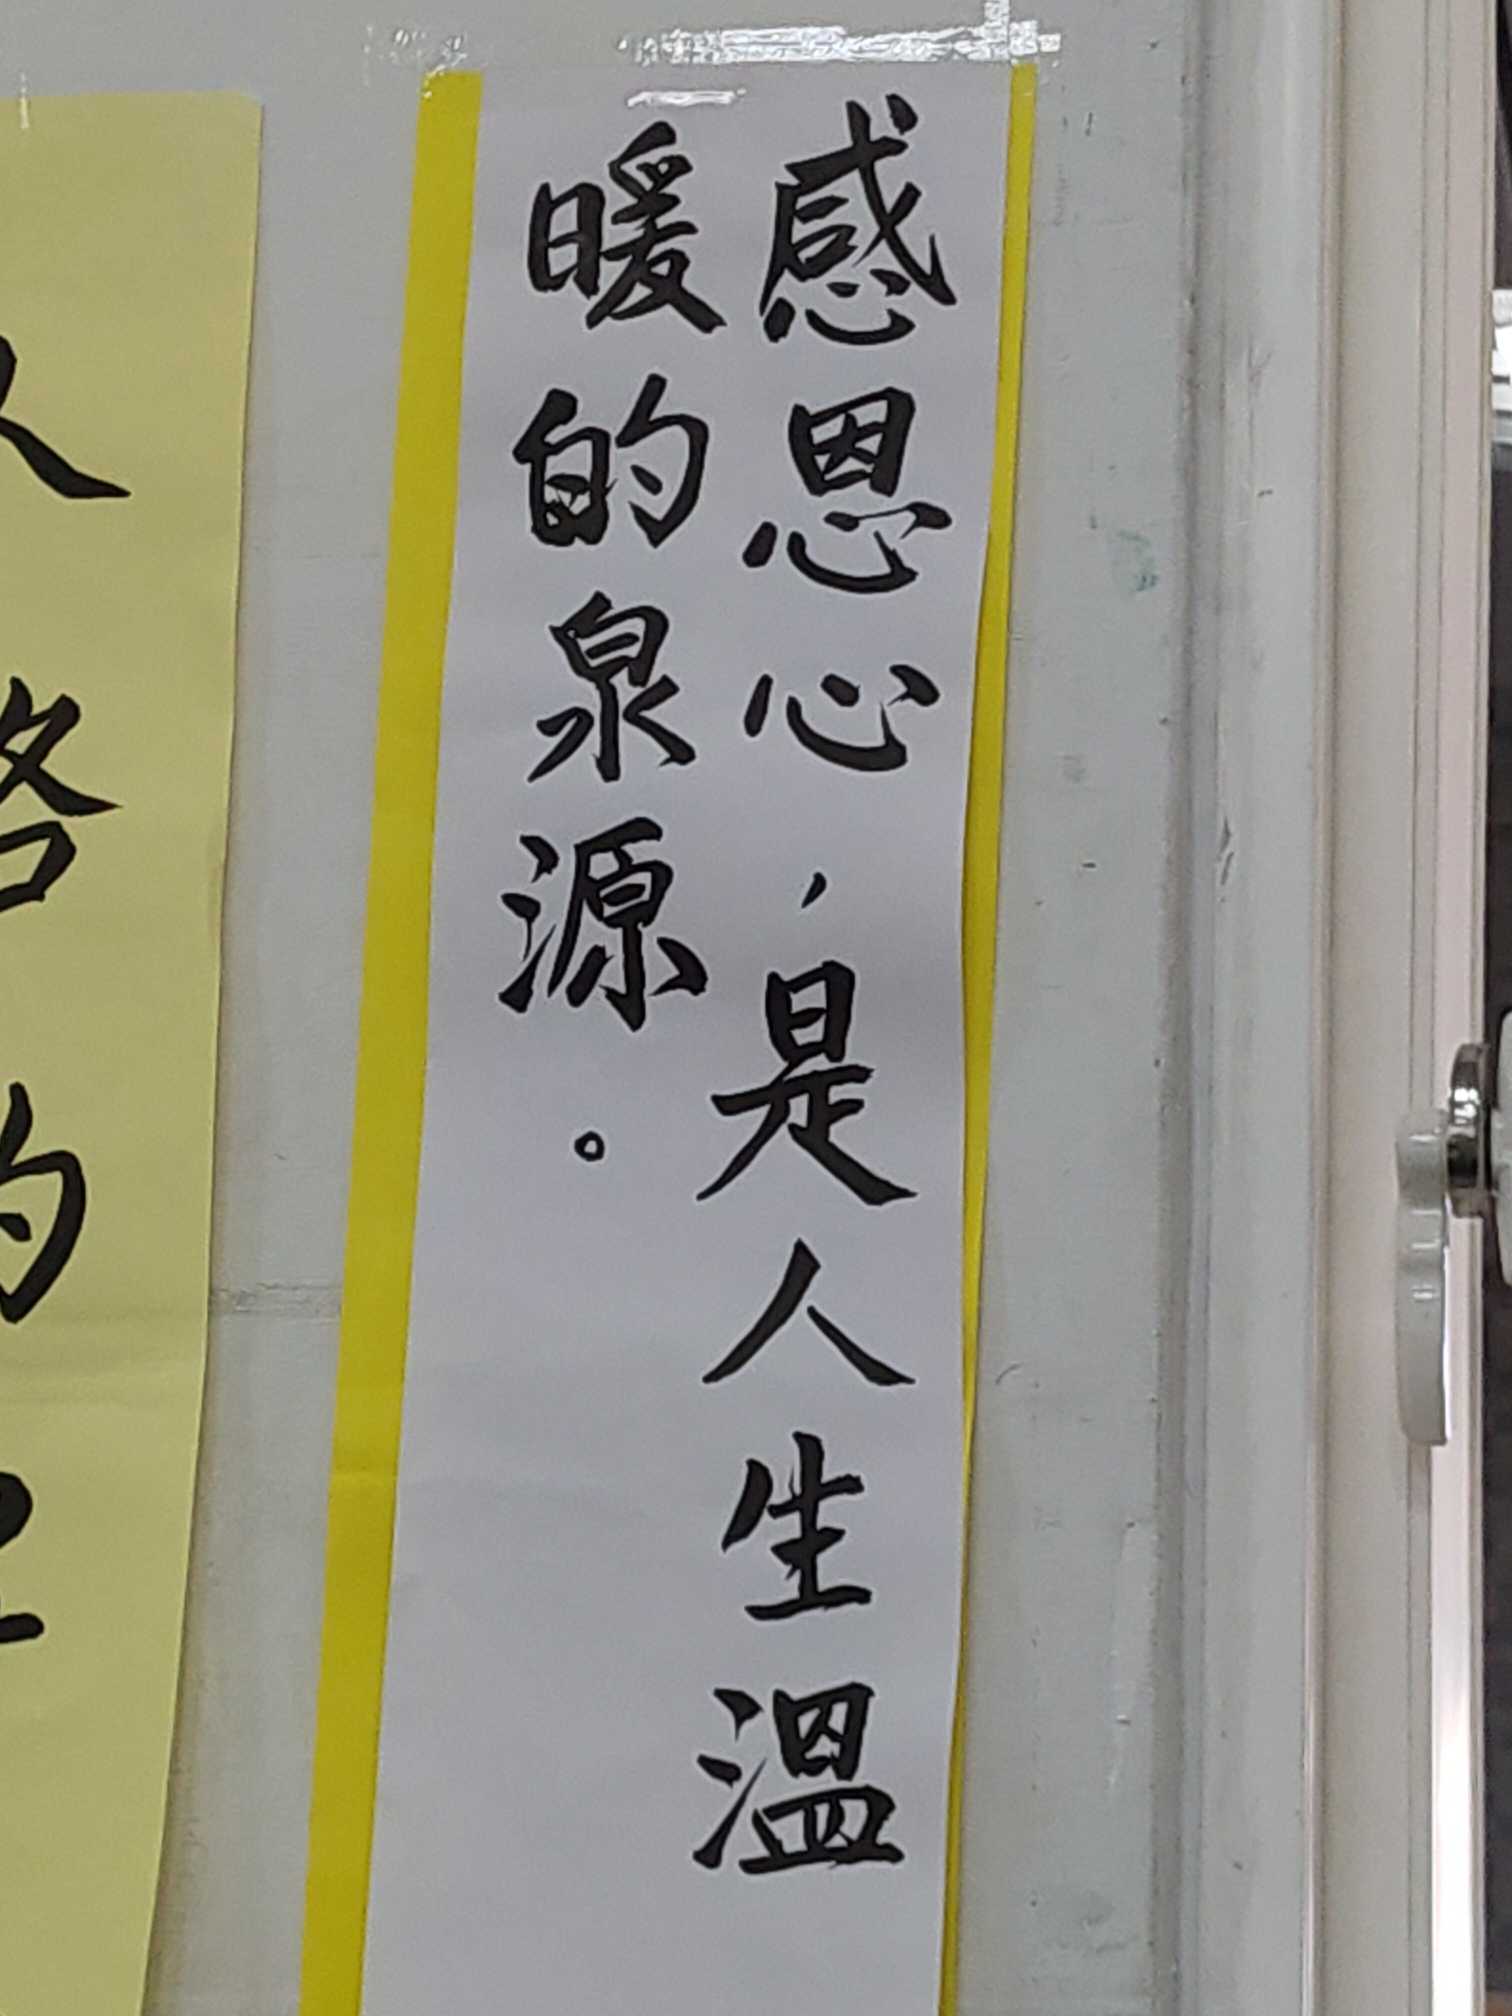 感恩心，是人生溫
暖的泉源。
的